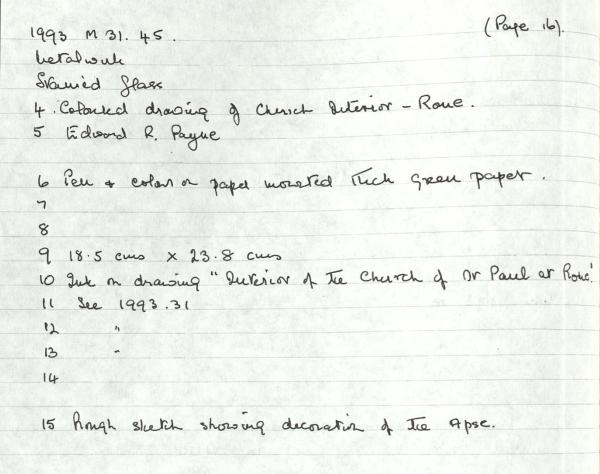 1993 M 31. 45. (Page 16).
Metalwork
Stained Glass
4. Coloured drawing of Church Interior - Rome.
5 Edward R. Payne
6 Pen & colour on paper mounted thick green paper.
7
8
9 18.5 cms x 23.8 cms
10 Ink on drawing "Interior of the Church of St Paul at Rome"
11 See 1993.31
12 "
13 "
14
15 Rough sketch showing decoration of the Apse.